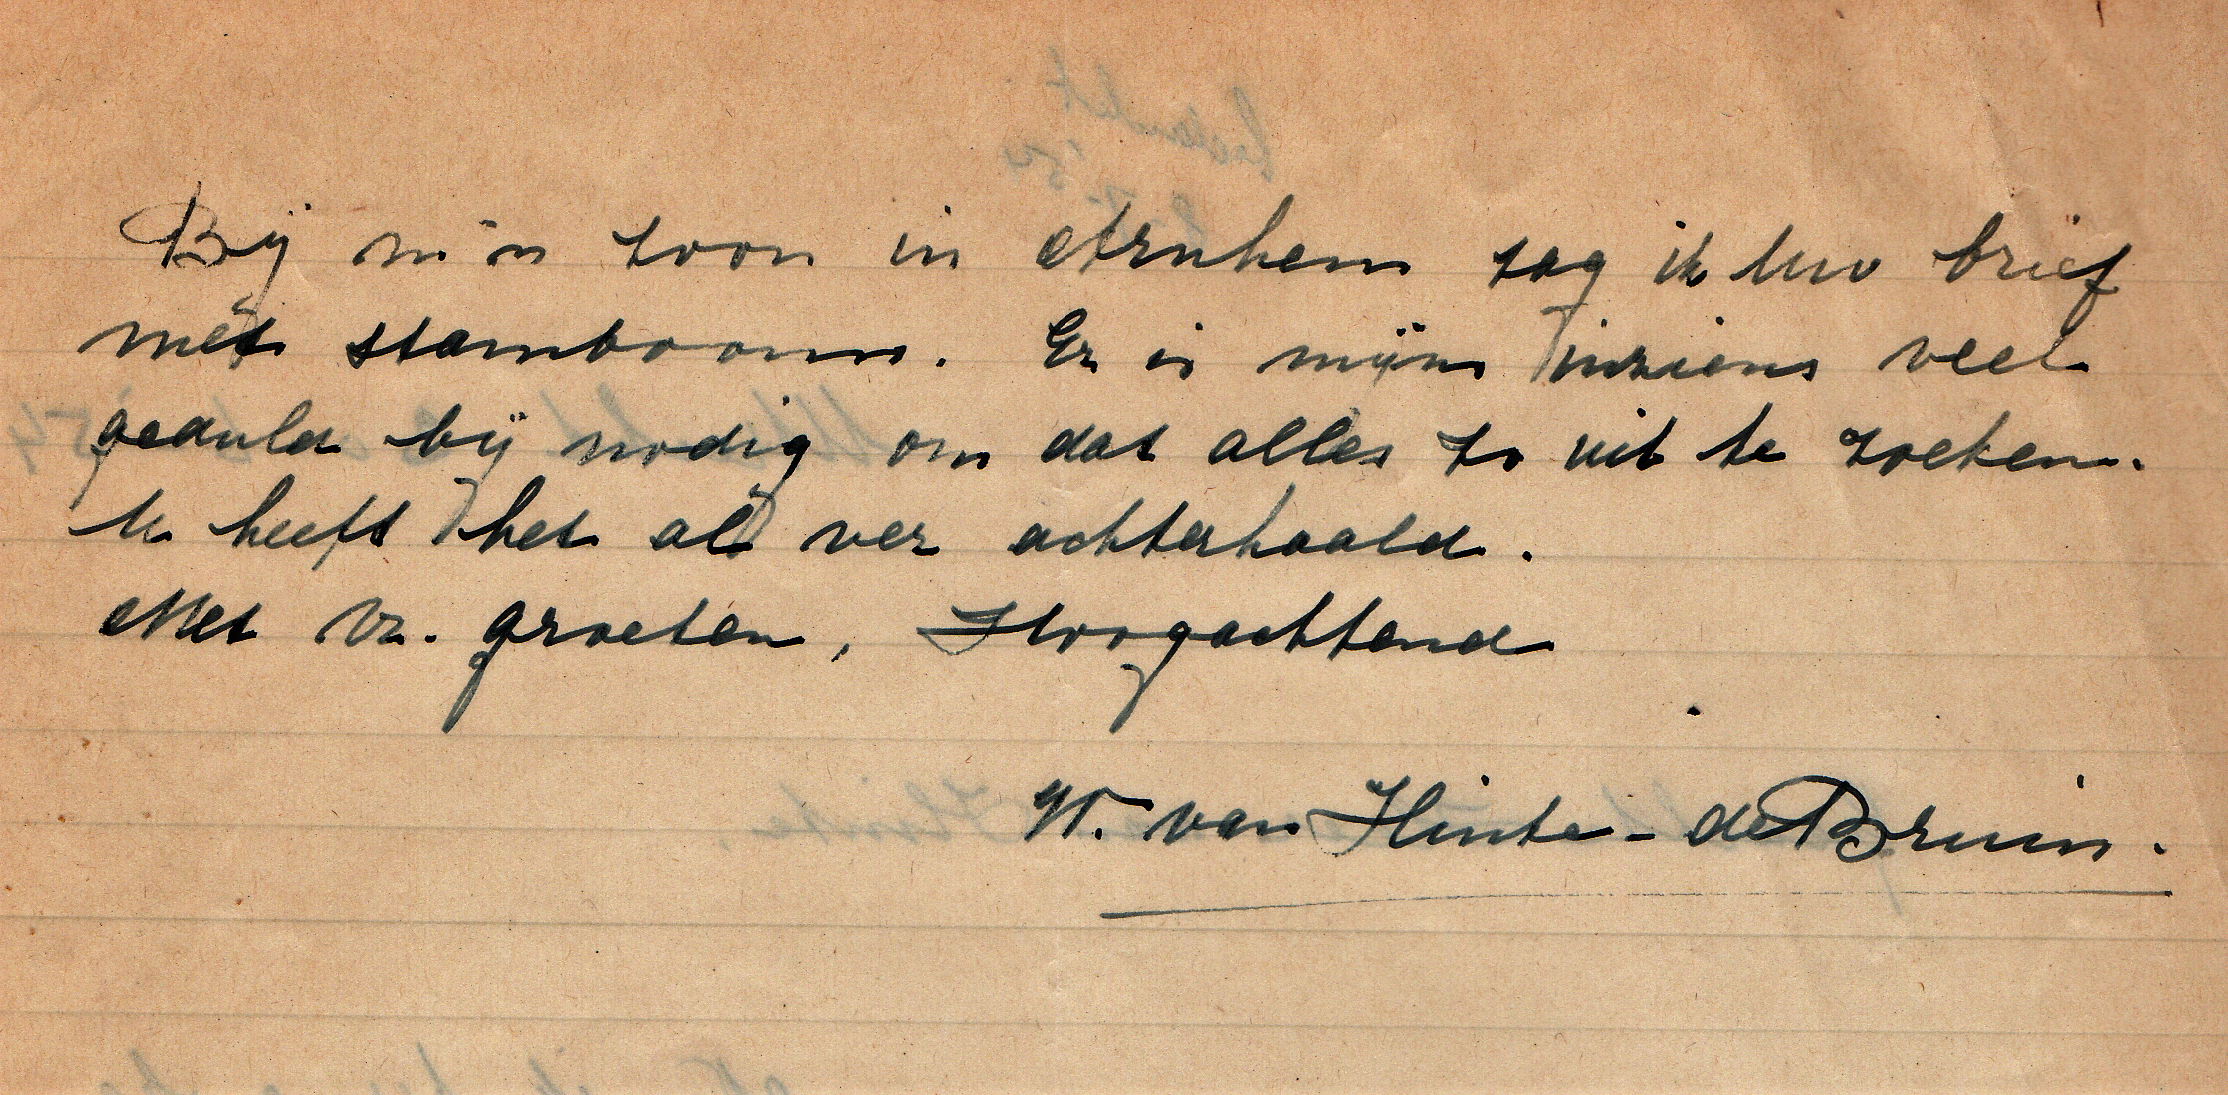 Bij m'n zoon in Arnhem zag ik Uw brief
met stamboom. Er is mijns inziens veel
geduld bij nodig om dat alles zo uit te zoeken.
U heeft het al ver achterhaald.
Met vr. groeten, Hoogachtend
W. van Hinte - de Bruin.